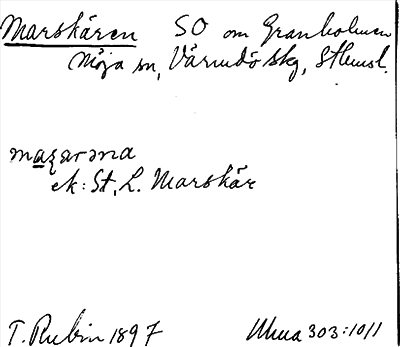 Marskären SO om Granholmen
Möja sn, Värmdö skg, Sthmsl.
mazarəna
ek: St, L. Marskär
T. Rubin 1897 Uhua 303:10/1